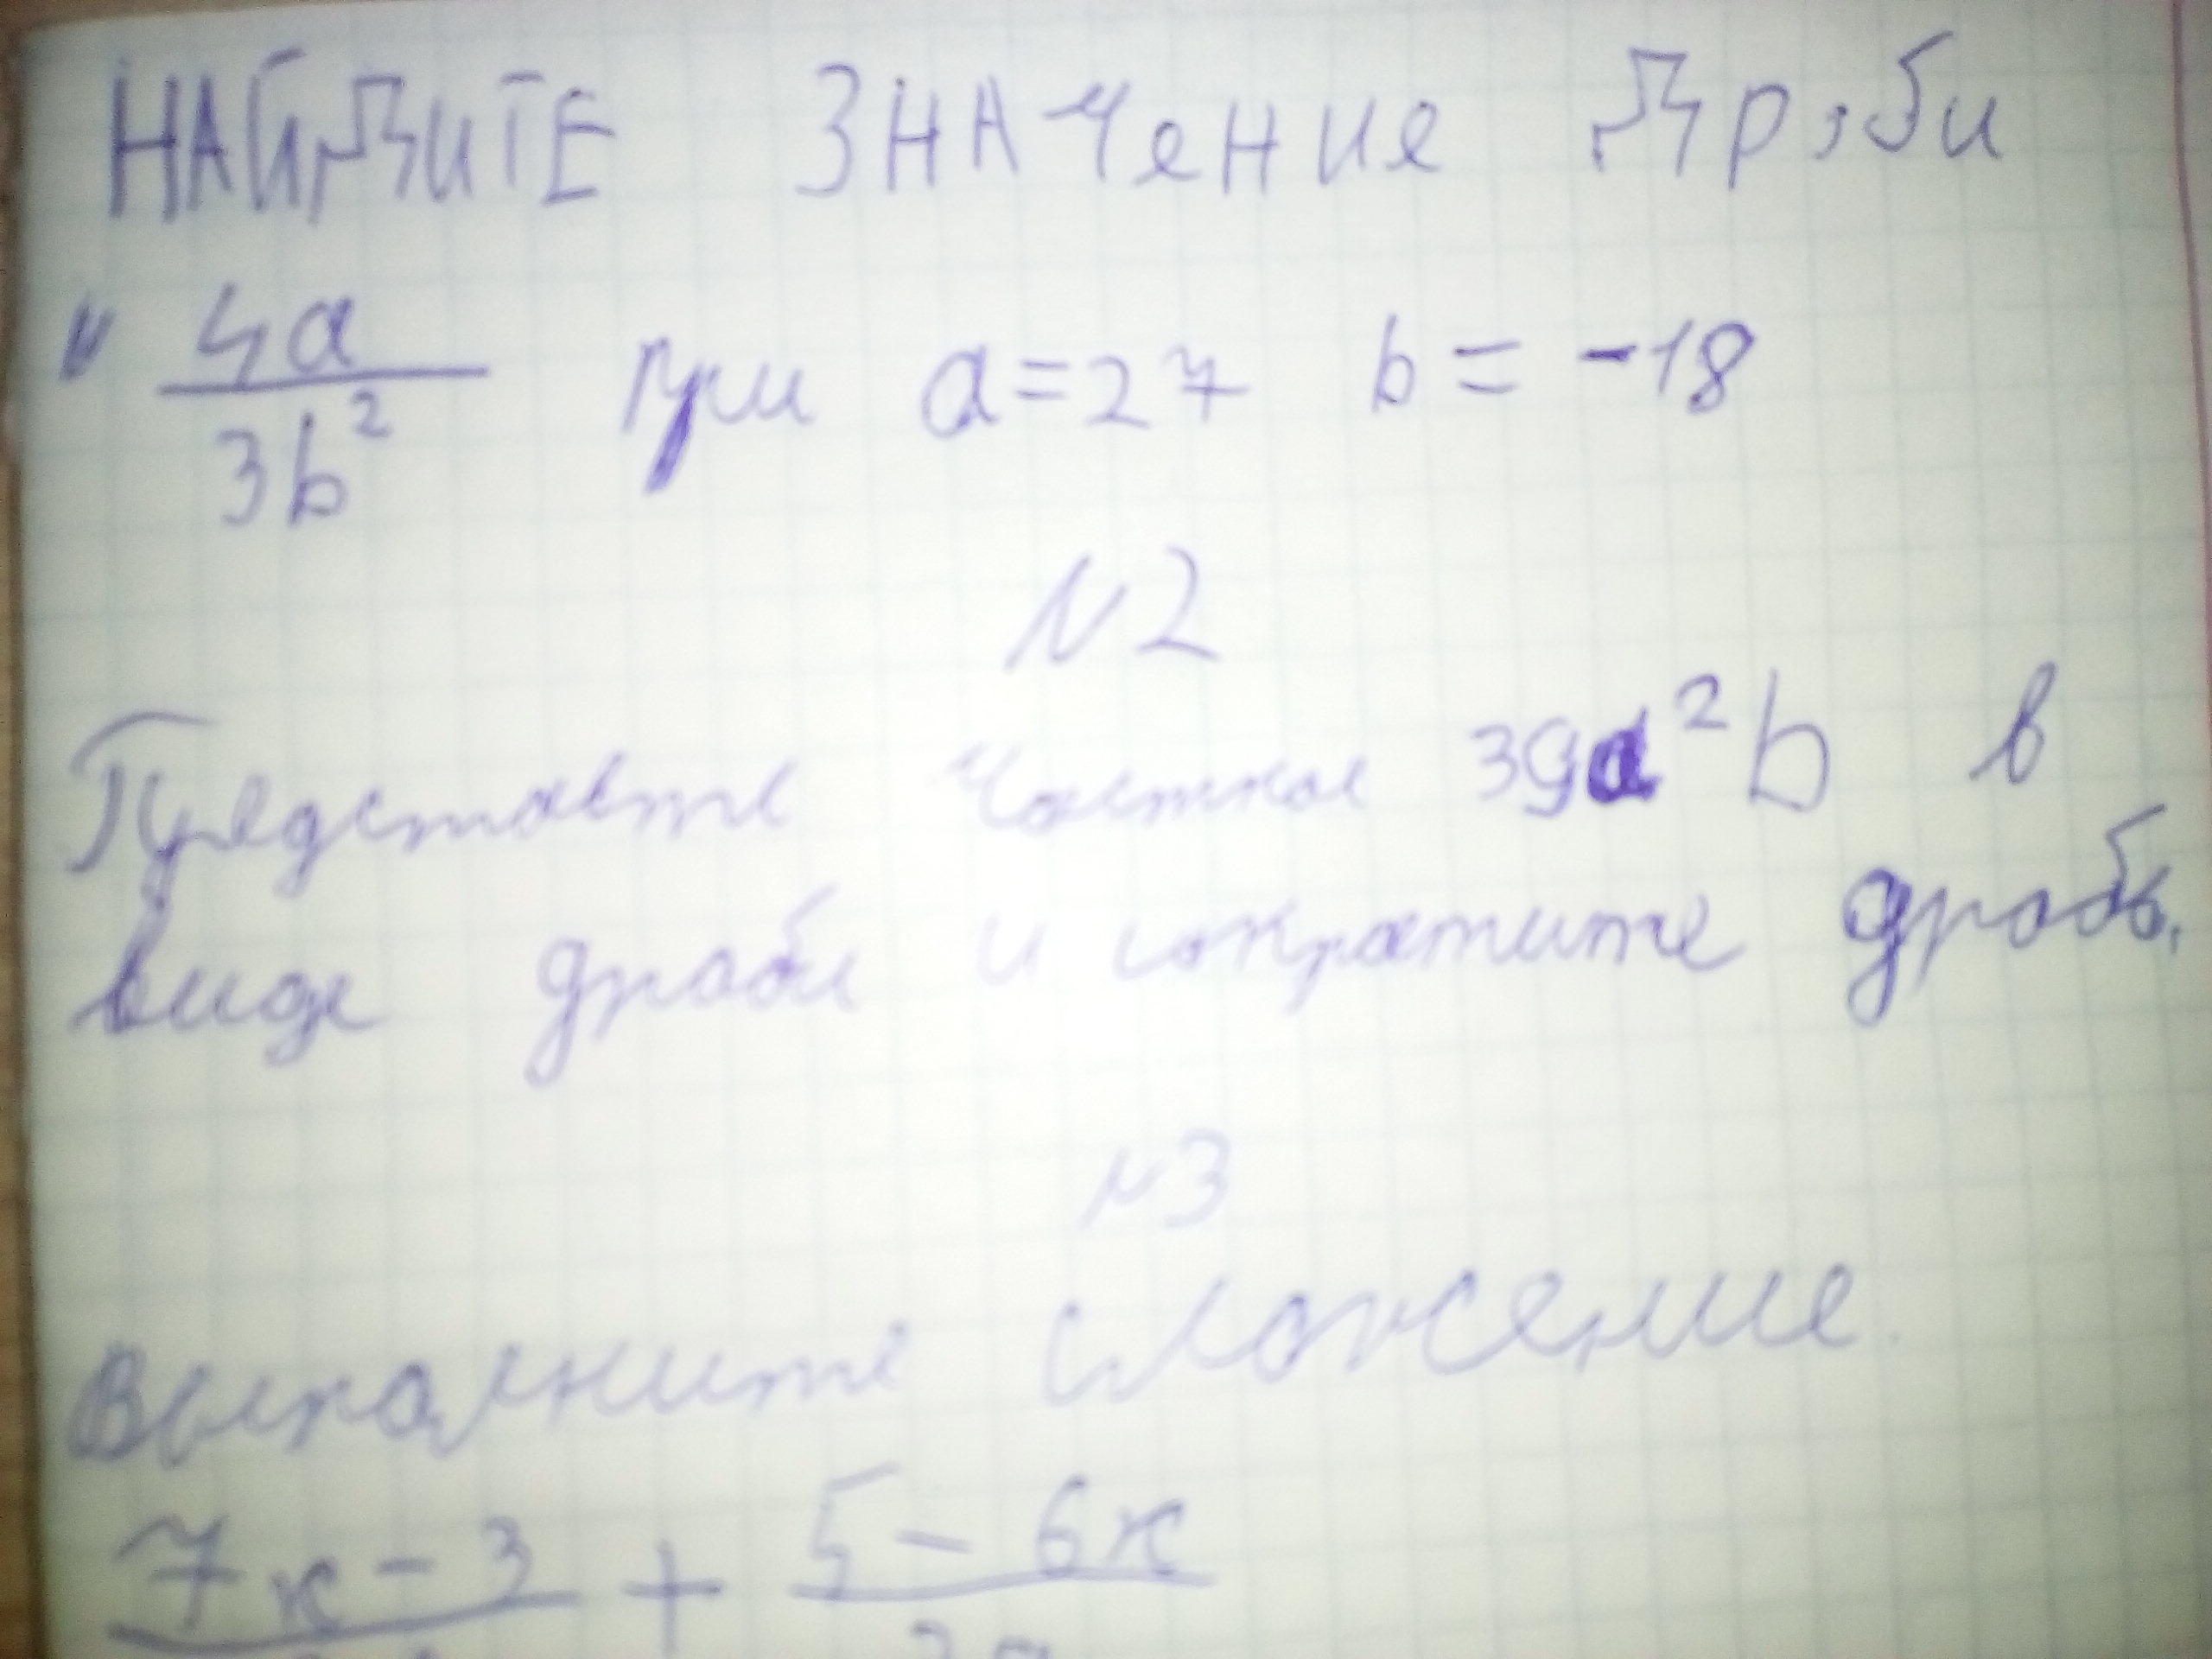 НАЙДИТЕ ЗНАЧЕНИЕ ДРОБИ
4a
3b² при a=27 b=-18
N2
Представте частное 39a²b в
виде дроби и сократите дробь.
N3
Выполните сложение.
7к-3 + 5-6к